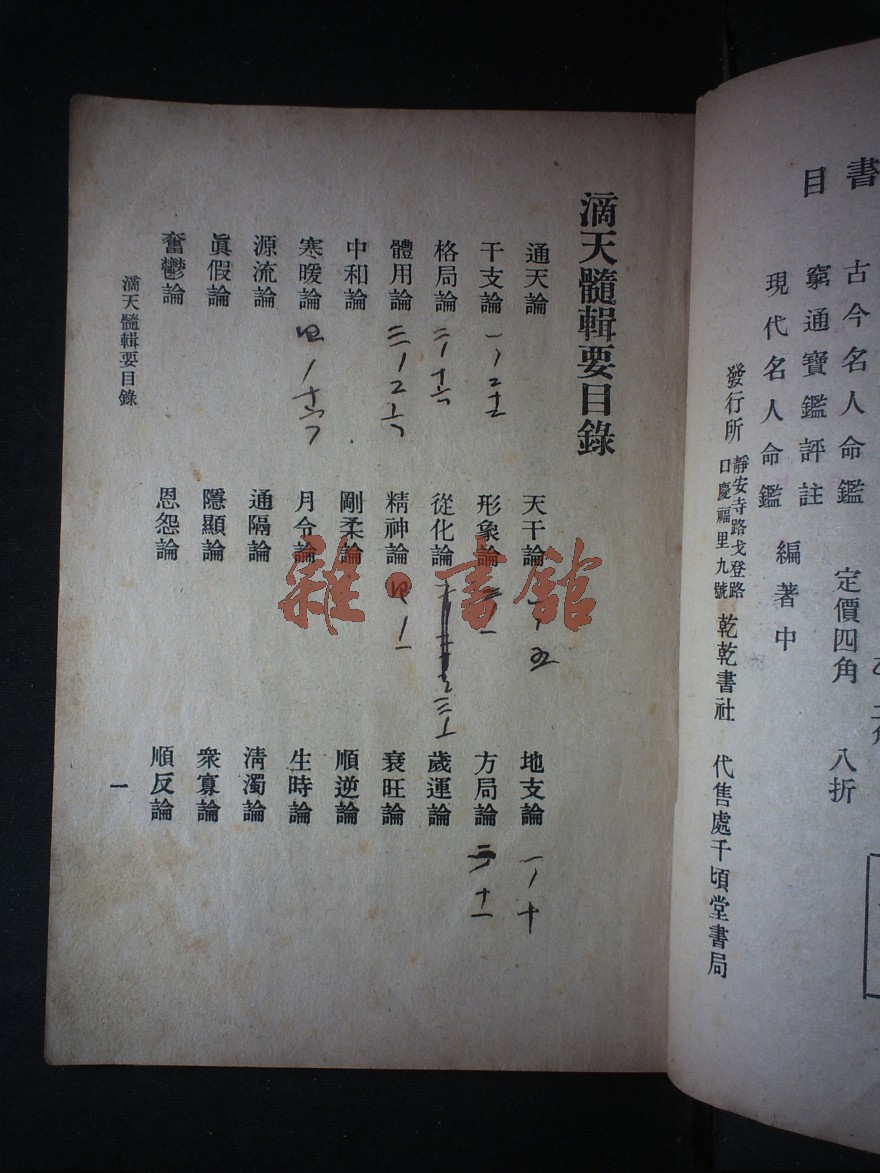 書
目
古今名人命鑑 定價四角 八折
窮通寶鑑評註
現代名人命鑑 編著中
發行所 靜安寺路戈登路口慶福里九號 乾乾書社 代售處千頃堂書局
滴天髓輯要目錄
通天論 天干論 一/五 地支論 一/十
干支論 一/二十 形象論 方局論 十一
格局論 二/十六 從化論 歲運論
體用論 三/二十六 精神論 四/一 衰旺論
中和論 剛柔論 順逆論
寒暖論 四/十六 月令論 生時論
源流論 通隔論 清濁論
眞假論 隱顯論 衆寡論
奮鬱論 恩怨論 順反論
滴天髓輯要目錄 一
雜·書館